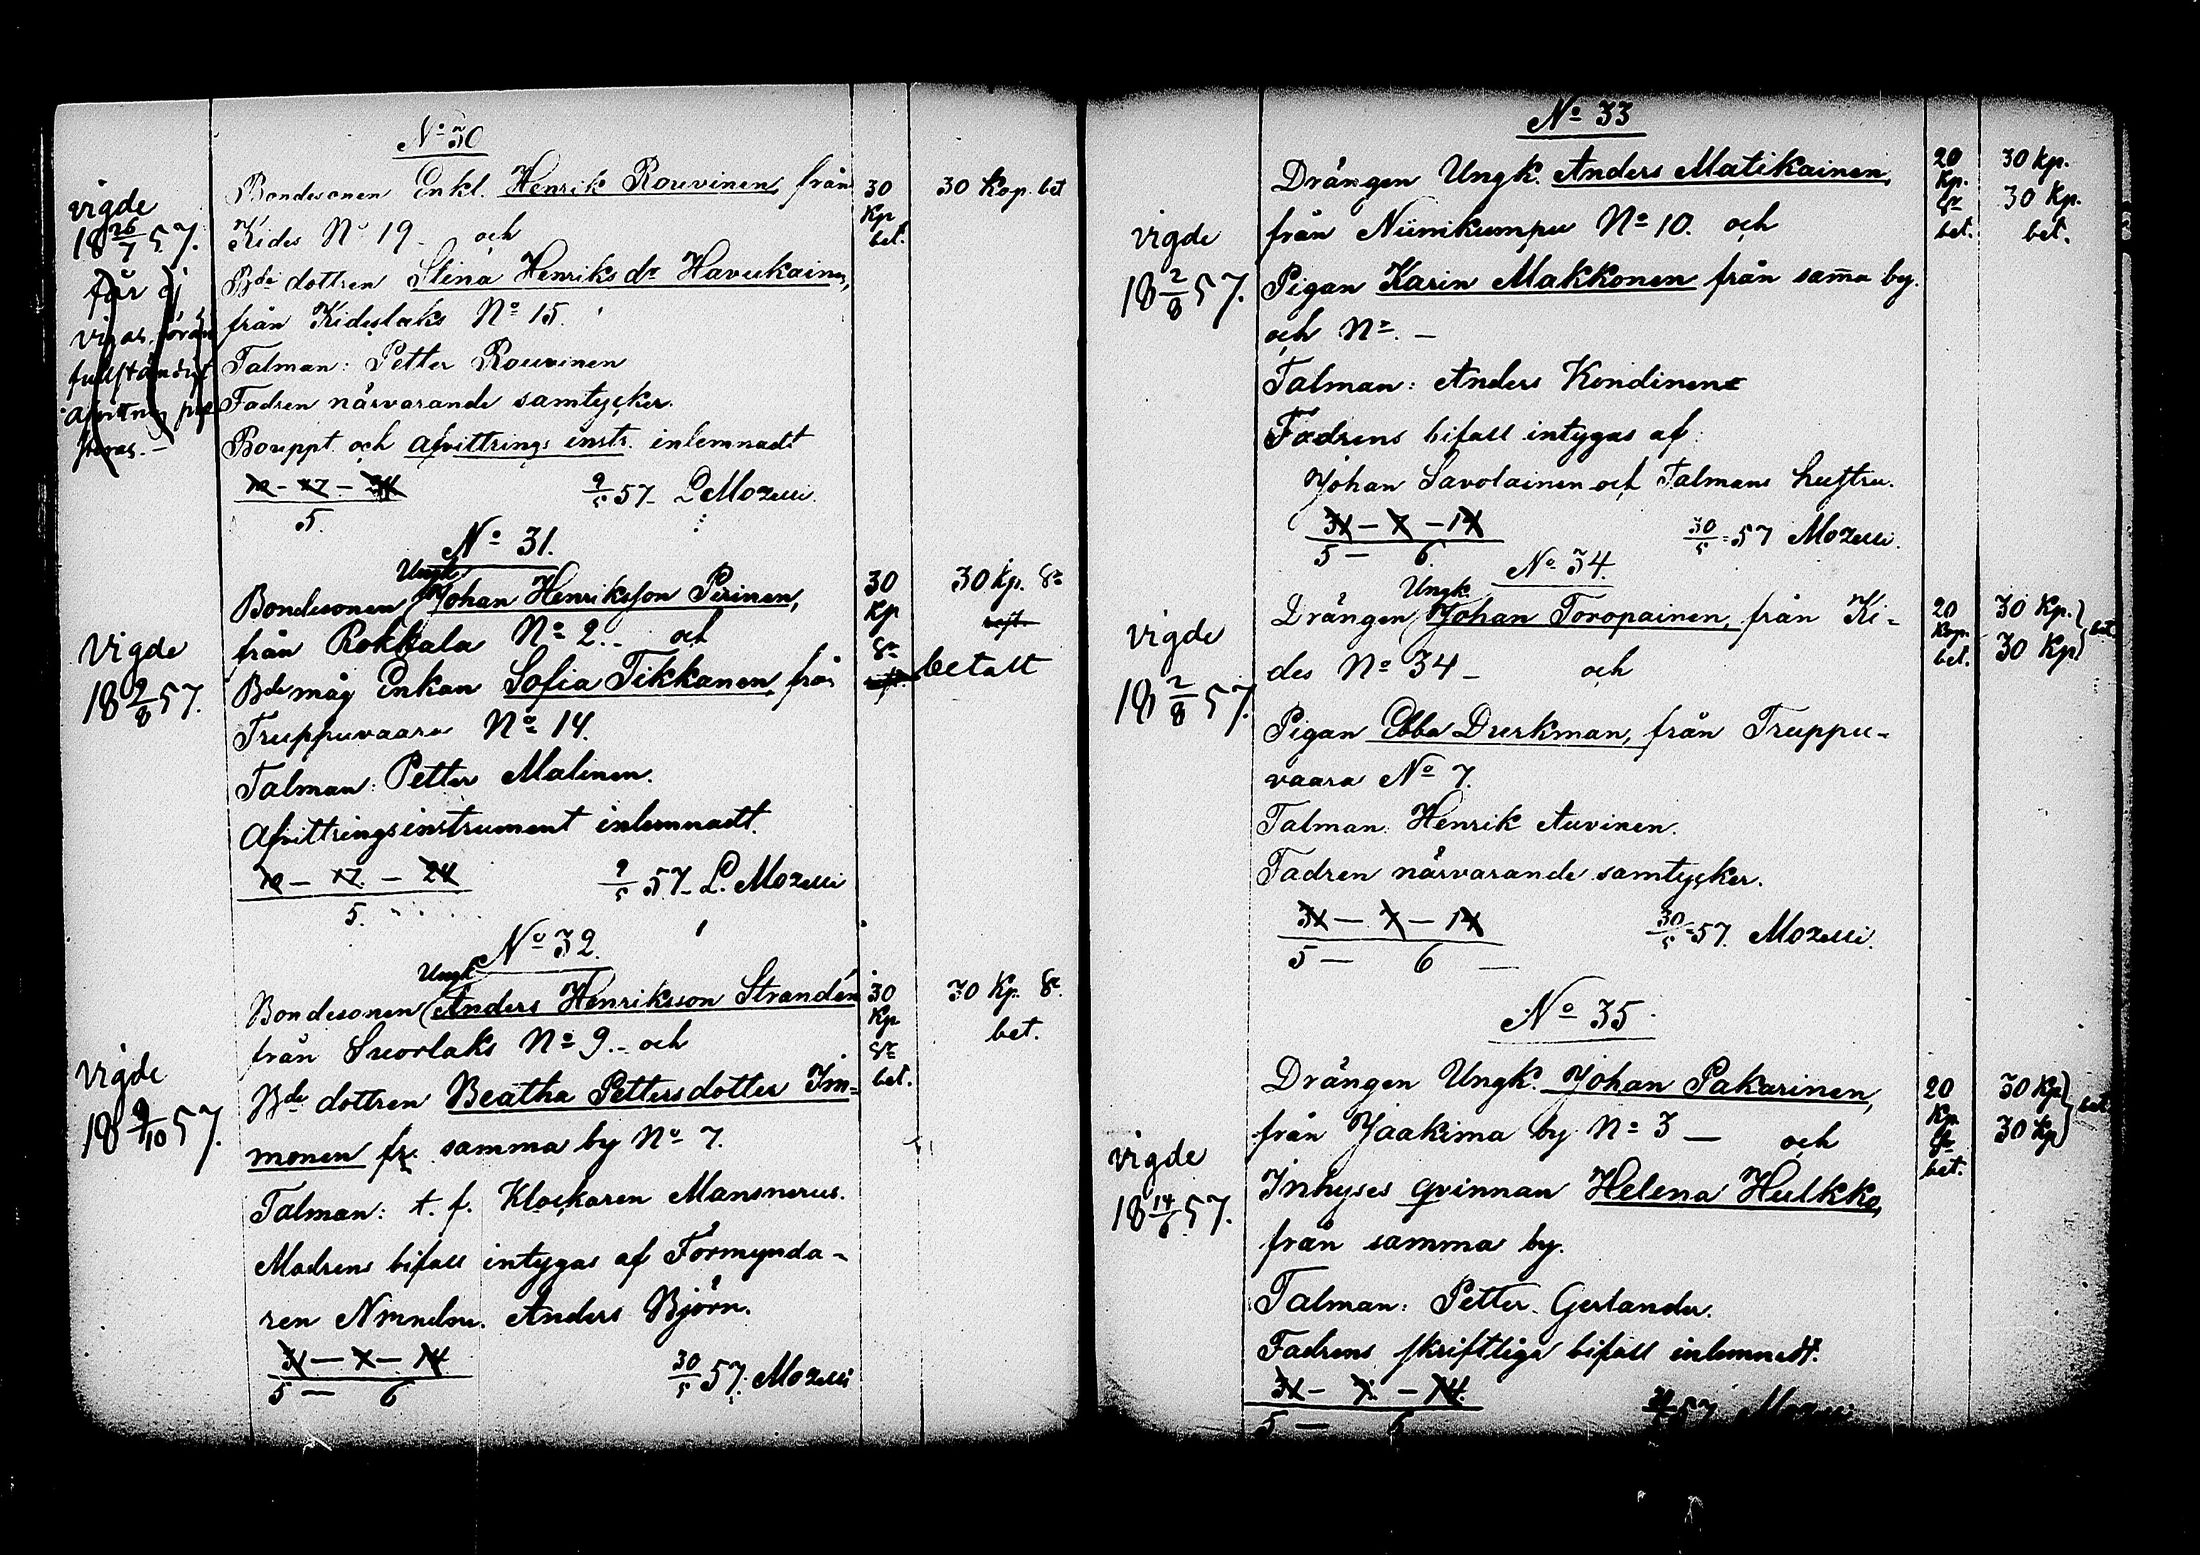 No 30
vigde
18 26/7 57.
får ej
vigas förän
fullständigt
afvittring pre
steras. -
Bondesonen Enkl. Henrik Rouvinen, från
Kides No 19 - och
Bde dottren Stina Henriks dr Havukainen,
från Kideslaks No 15.
Talman: Petter Rouvinen
Fadren närvarande samtycker.
Bouppt. och afvittrings instr. inlemnadt
10 - 17 - 24
5.
9/5 57 - L Mozelli.
30
Kp
bet.
30 Kop. bet
No 31.
Ungk
vigde
18 9/8 57.
Bondesonen Johan Henriksson Pirinen,
från Rokkala No 2. - och
Bde måg Enkan Sofia Tikkanen, från
Truppuvaara No 14.
Talman: Petter Malinen.
Afvittringsinstrument inlemnadt.
10 - 17. - 24
5.
9/5 57 - L. Mozelli
30
Kp
Sr
30 Kp. Sr
rest.
betalt
No 32.
Ungk
vigde
18 9/10 57.
Bondesonen Anders Henriksson Strandén
från Suorlaks No 9. - och
Bde dottren Beatha Pettersdotter Im=
monen fr. samma by No 7.
Talman: t. f. Klockaren Mansnerus.
Modrens bifall intygas af Förmynda-
ren Nmndsm. Anders Björn.
31 - 7 - 14
5 - 6
30/5 57. Mozelli
30
Kp
Sr
bet.
30 Kp. Sr.
bet.
No 33
vigde
18 2/8 57.
Drängen Ungk. Anders Matikainen,
från Niinikumpu No 10. och
Pigan Karin Makkonen från sam̄a by.
och No. -
Talman: Anders Kondinen
Fadrens bifall intygas af
Johan Savolainen och Talmans hustru.
31 - 7 - 14
5 - 6
30/5 = 57 Mozelli.
20
Kp.
Sr
bet.
30 Kp.
30 Kp.
bet.
No 34.
Ungk.
vigde
18 2/8 57.
Drängen Johan Toropainen, från Ki-
des No 34 - och
Pigan Ebba Durkman, från Truppu-
vaara No 7.
Talman: Henrik Auvinen.
Fadren närvarande samtycker.
31 - 7 - 14
5 - 6 -
30/5 = 57. Mozelli.
20
Kop.
bet.
30 Kp.
30 Kp
bet
No 35.
vigde
18 14/6 57.
Drängen Ungk. Johan Pakarinen,
från Jaakima by No 3 - och
Inhyses qvinnan Helena Hulkko,
från samma by.
Talman: Petter Gerlander.
Fadrens skriftliga bifall inlemnadt.
31 - 7. - 14.
5 - 6
57 Mozelli
20
Kp.
Sr
bet.
30 Kp
30 Kp
bet